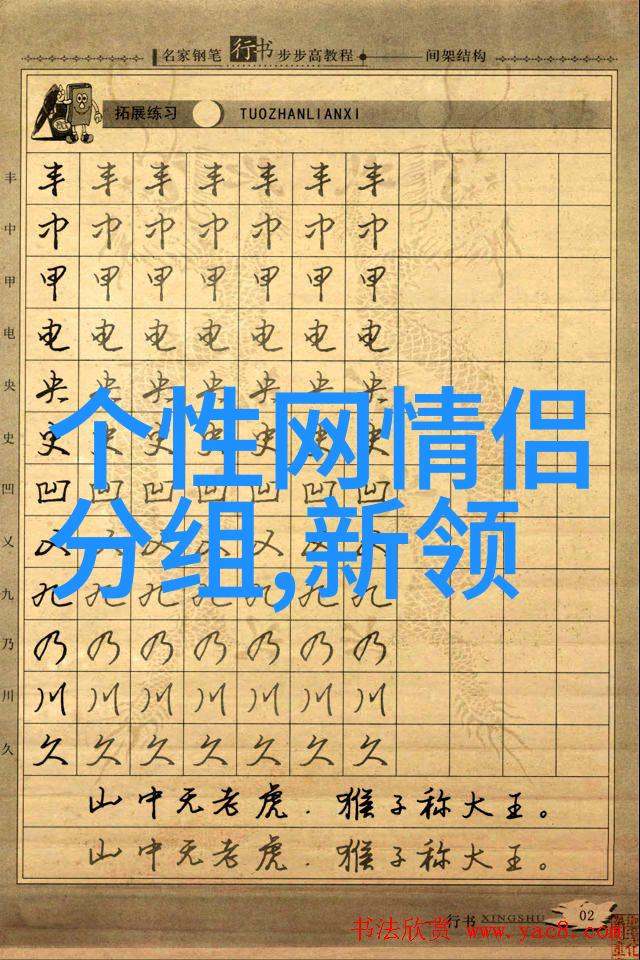 名家钢笔行书步步高教程 间架结构
拓展练习 TUOZHANLIANXI
丰 丰 丰 丰 丰 丰 丰 丰
中 中 中 中 中 中 中 中
甲 甲 甲 甲 甲 甲 甲 甲
电 电 电 电 电 电 电 电
央 央 央 央 央 央 央 央
个性网情侣
史 史 史 史 史 史 史 史
凹 凹 凹 凹 凹 凹 凹 凹
分组,新领
乂 乂 乂 乂 乂 乂 乂 乂
九 九 九 九 九 九 九 九
乃 乃 乃 乃 乃 乃 乃 乃
川 川 川 川 川 川 川 川
久 久 久 久 久 久 久 久
山中无老虎.猴子称大王。
山中无老虎.猴子称大王。
行书 XINGSHU 02
书法欣赏 www.yac8.com